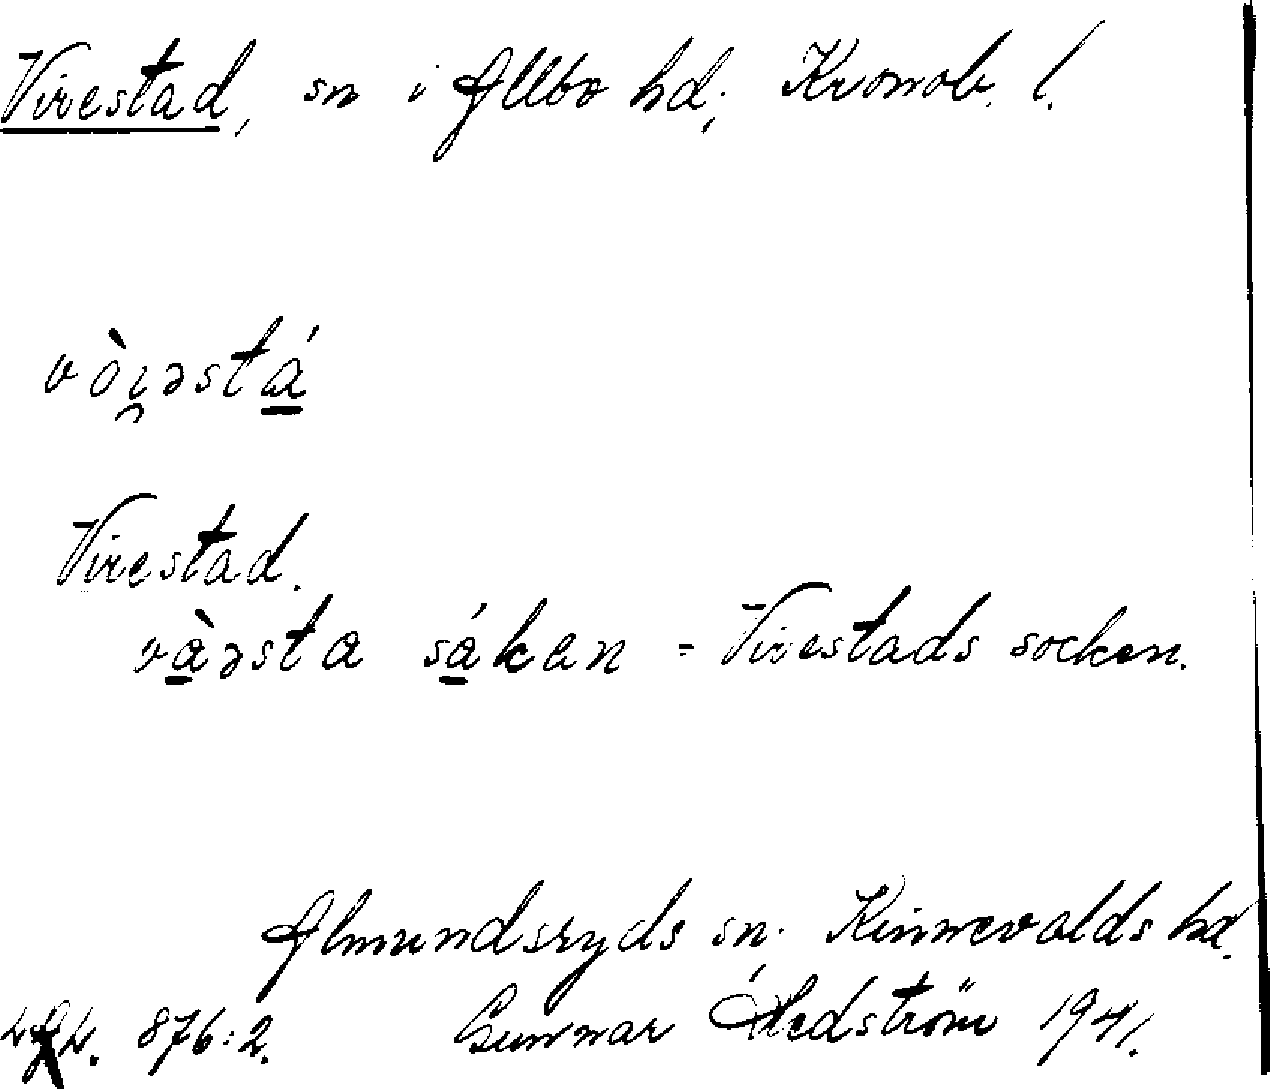 Virestad, sn i Allbo hd; Kronob. l.
vòi̯əstá̱
Virestad.
và̱əsta sá̱kan = Virestads socken.
Almundsryds sn. Kinnevalds hd.
876:2. Gunnar Hedström 1941.